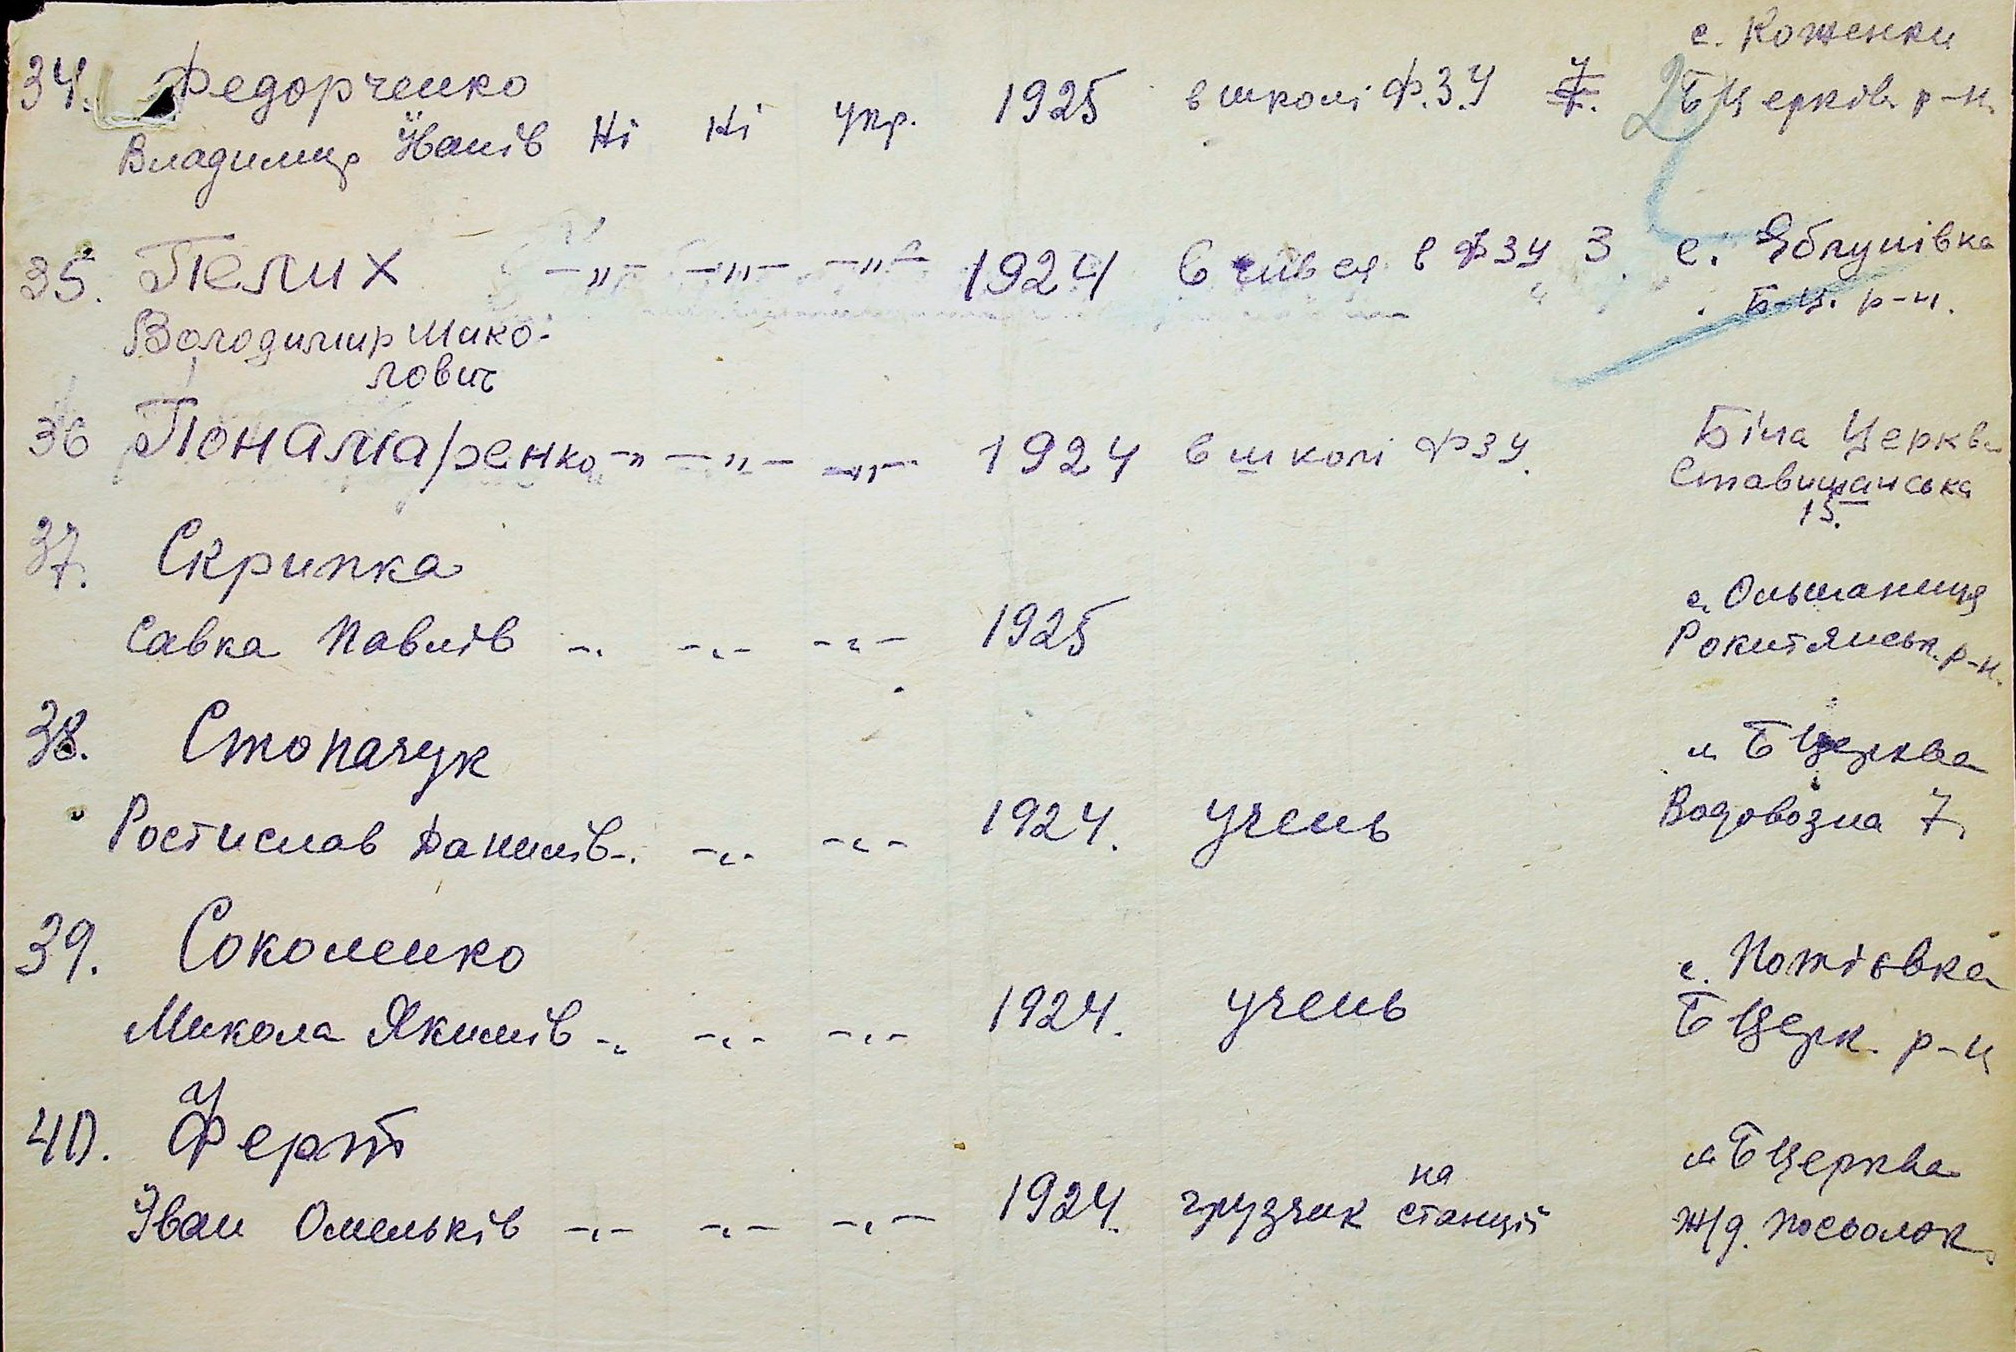 с. Коженки
34. Федорченко
Владимир Іванів Ні Ні укр. 1925 в школі Ф.З.У 7. БЦерків. р-н.
35. Пелих -"- -"- -"- 1924 Вчився в ФЗУ 3. с. Яблунівка
Б-Ц. р-н.
Володимир Мико-
лович
36 Понамаренко -"- -"- -"- 1924 в школі ФЗУ. Біла Церква
Ставищанська
15.
37. Скрипка
с. Ольшаниця
Савка Павлів -"- -"- -"- 1925 Рокитянськ. р-н.
38. Стопачук
м БЦерква
Ростислав Данилів -"- -"- -"- 1924. учень Водовозна 7.
39. Соколенко
с. Потіївка
Микола Якимів -"- -"- -"- 1924. учень БЦерк. р-н
40. Ферт
м БЦерква
Іван Омельків -"- -"- -"- 1924. грузчик на станції Ж/д. посьолок.